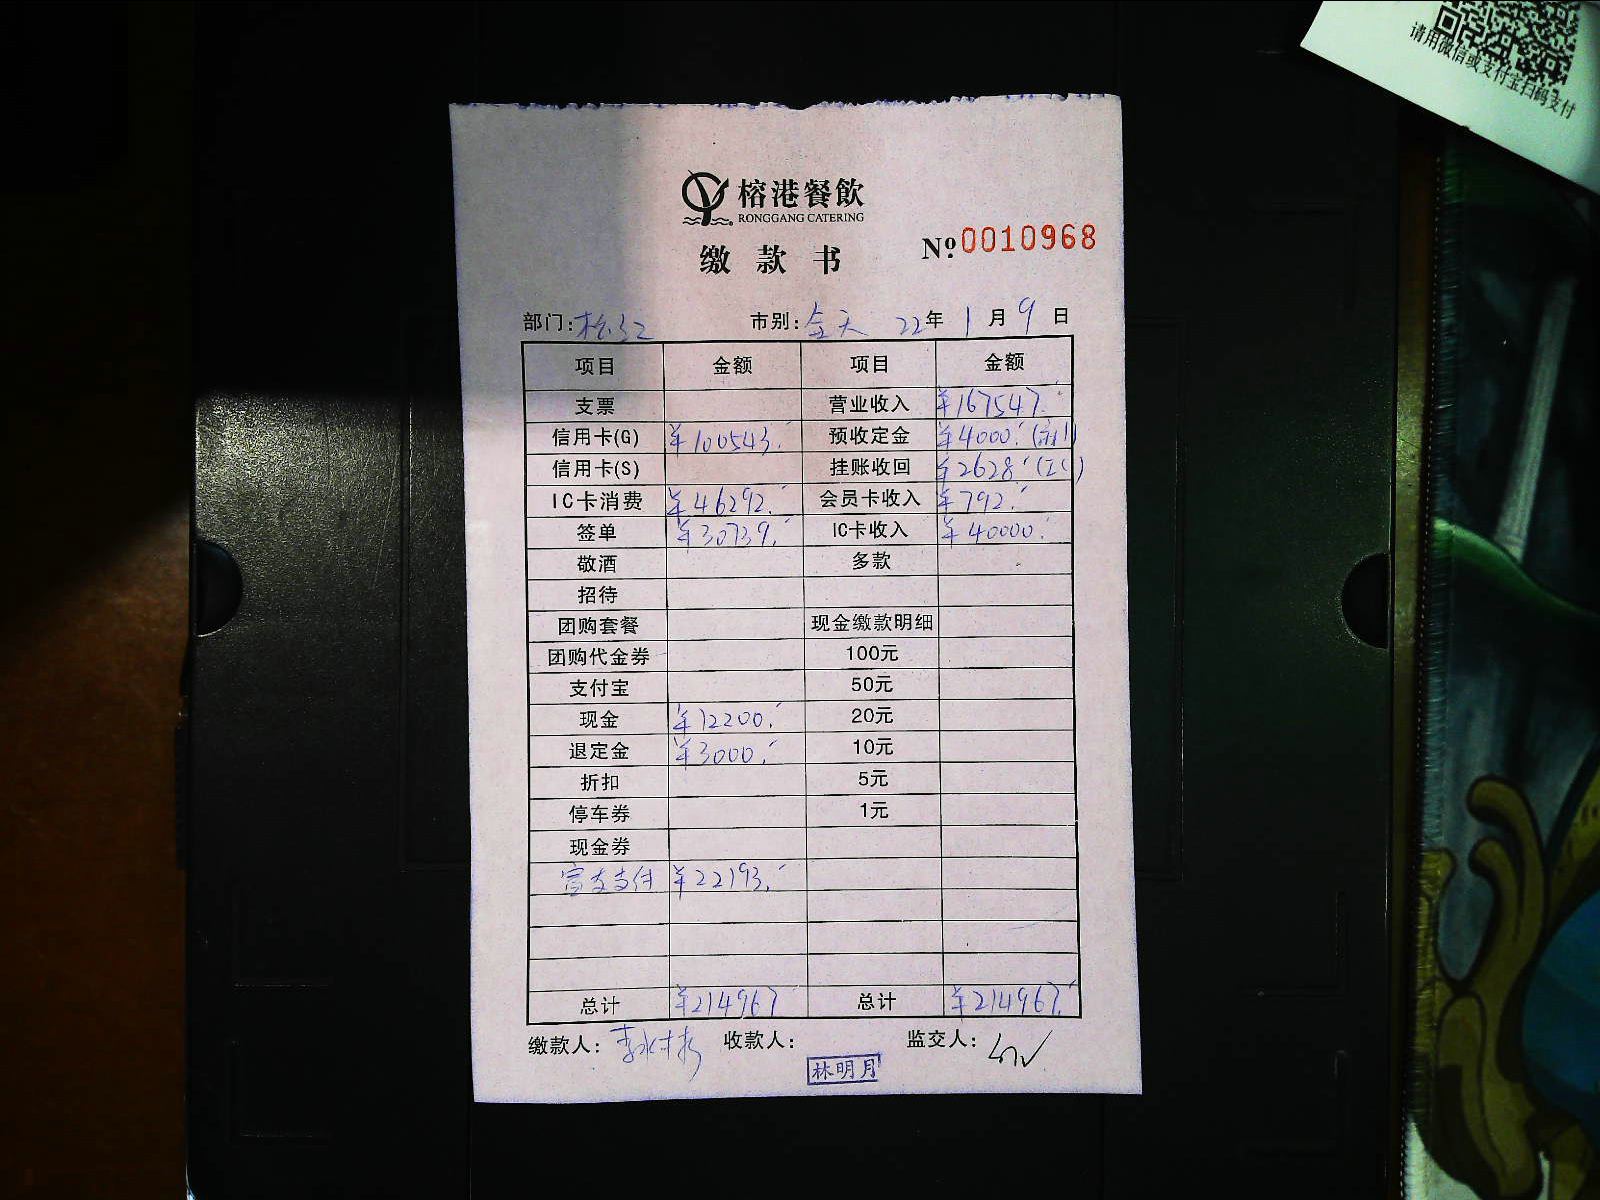 请用微信或支付宝扫码支付
榕港餐飲
RONGGANG CATERING
缴款书
№ 0010968
部门: 松江 市别: 全天 22年 1月 9日
项目 金额 项目 金额
支票 营业收入 ¥167547.
信用卡(G) ¥100543. 预收定金 ¥4000.
信用卡(S) 挂账收回 ¥2628. (IC)
IC卡消费 ¥46292. 会员卡收入 ¥792.
签单 ¥30739. IC卡收入 ¥40000.
敬酒 多款
招待
团购套餐 现金缴款明细
团购代金券 100元
支付宝 50元
现金 ¥12200. 20元
退定金 ¥3000. 10元
折扣 5元
停车券 1元
现金券
支付 ¥22193.
总计 ¥214967 总计 ¥214967.
缴款人: 收款人: 监交人:
林明月